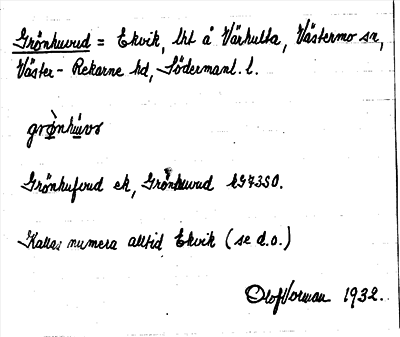 Grönhuvud = Ekvik, lht å Värhulta, Västermo sn,
Väster-Rekarne hd, Södermanl. l.
grø̀nhúvv
Grönhufvud ek, Grönhuvud KG7350.
Kallas numera alltid Ekvik (se d.o.)
Olof Vorman 1932.